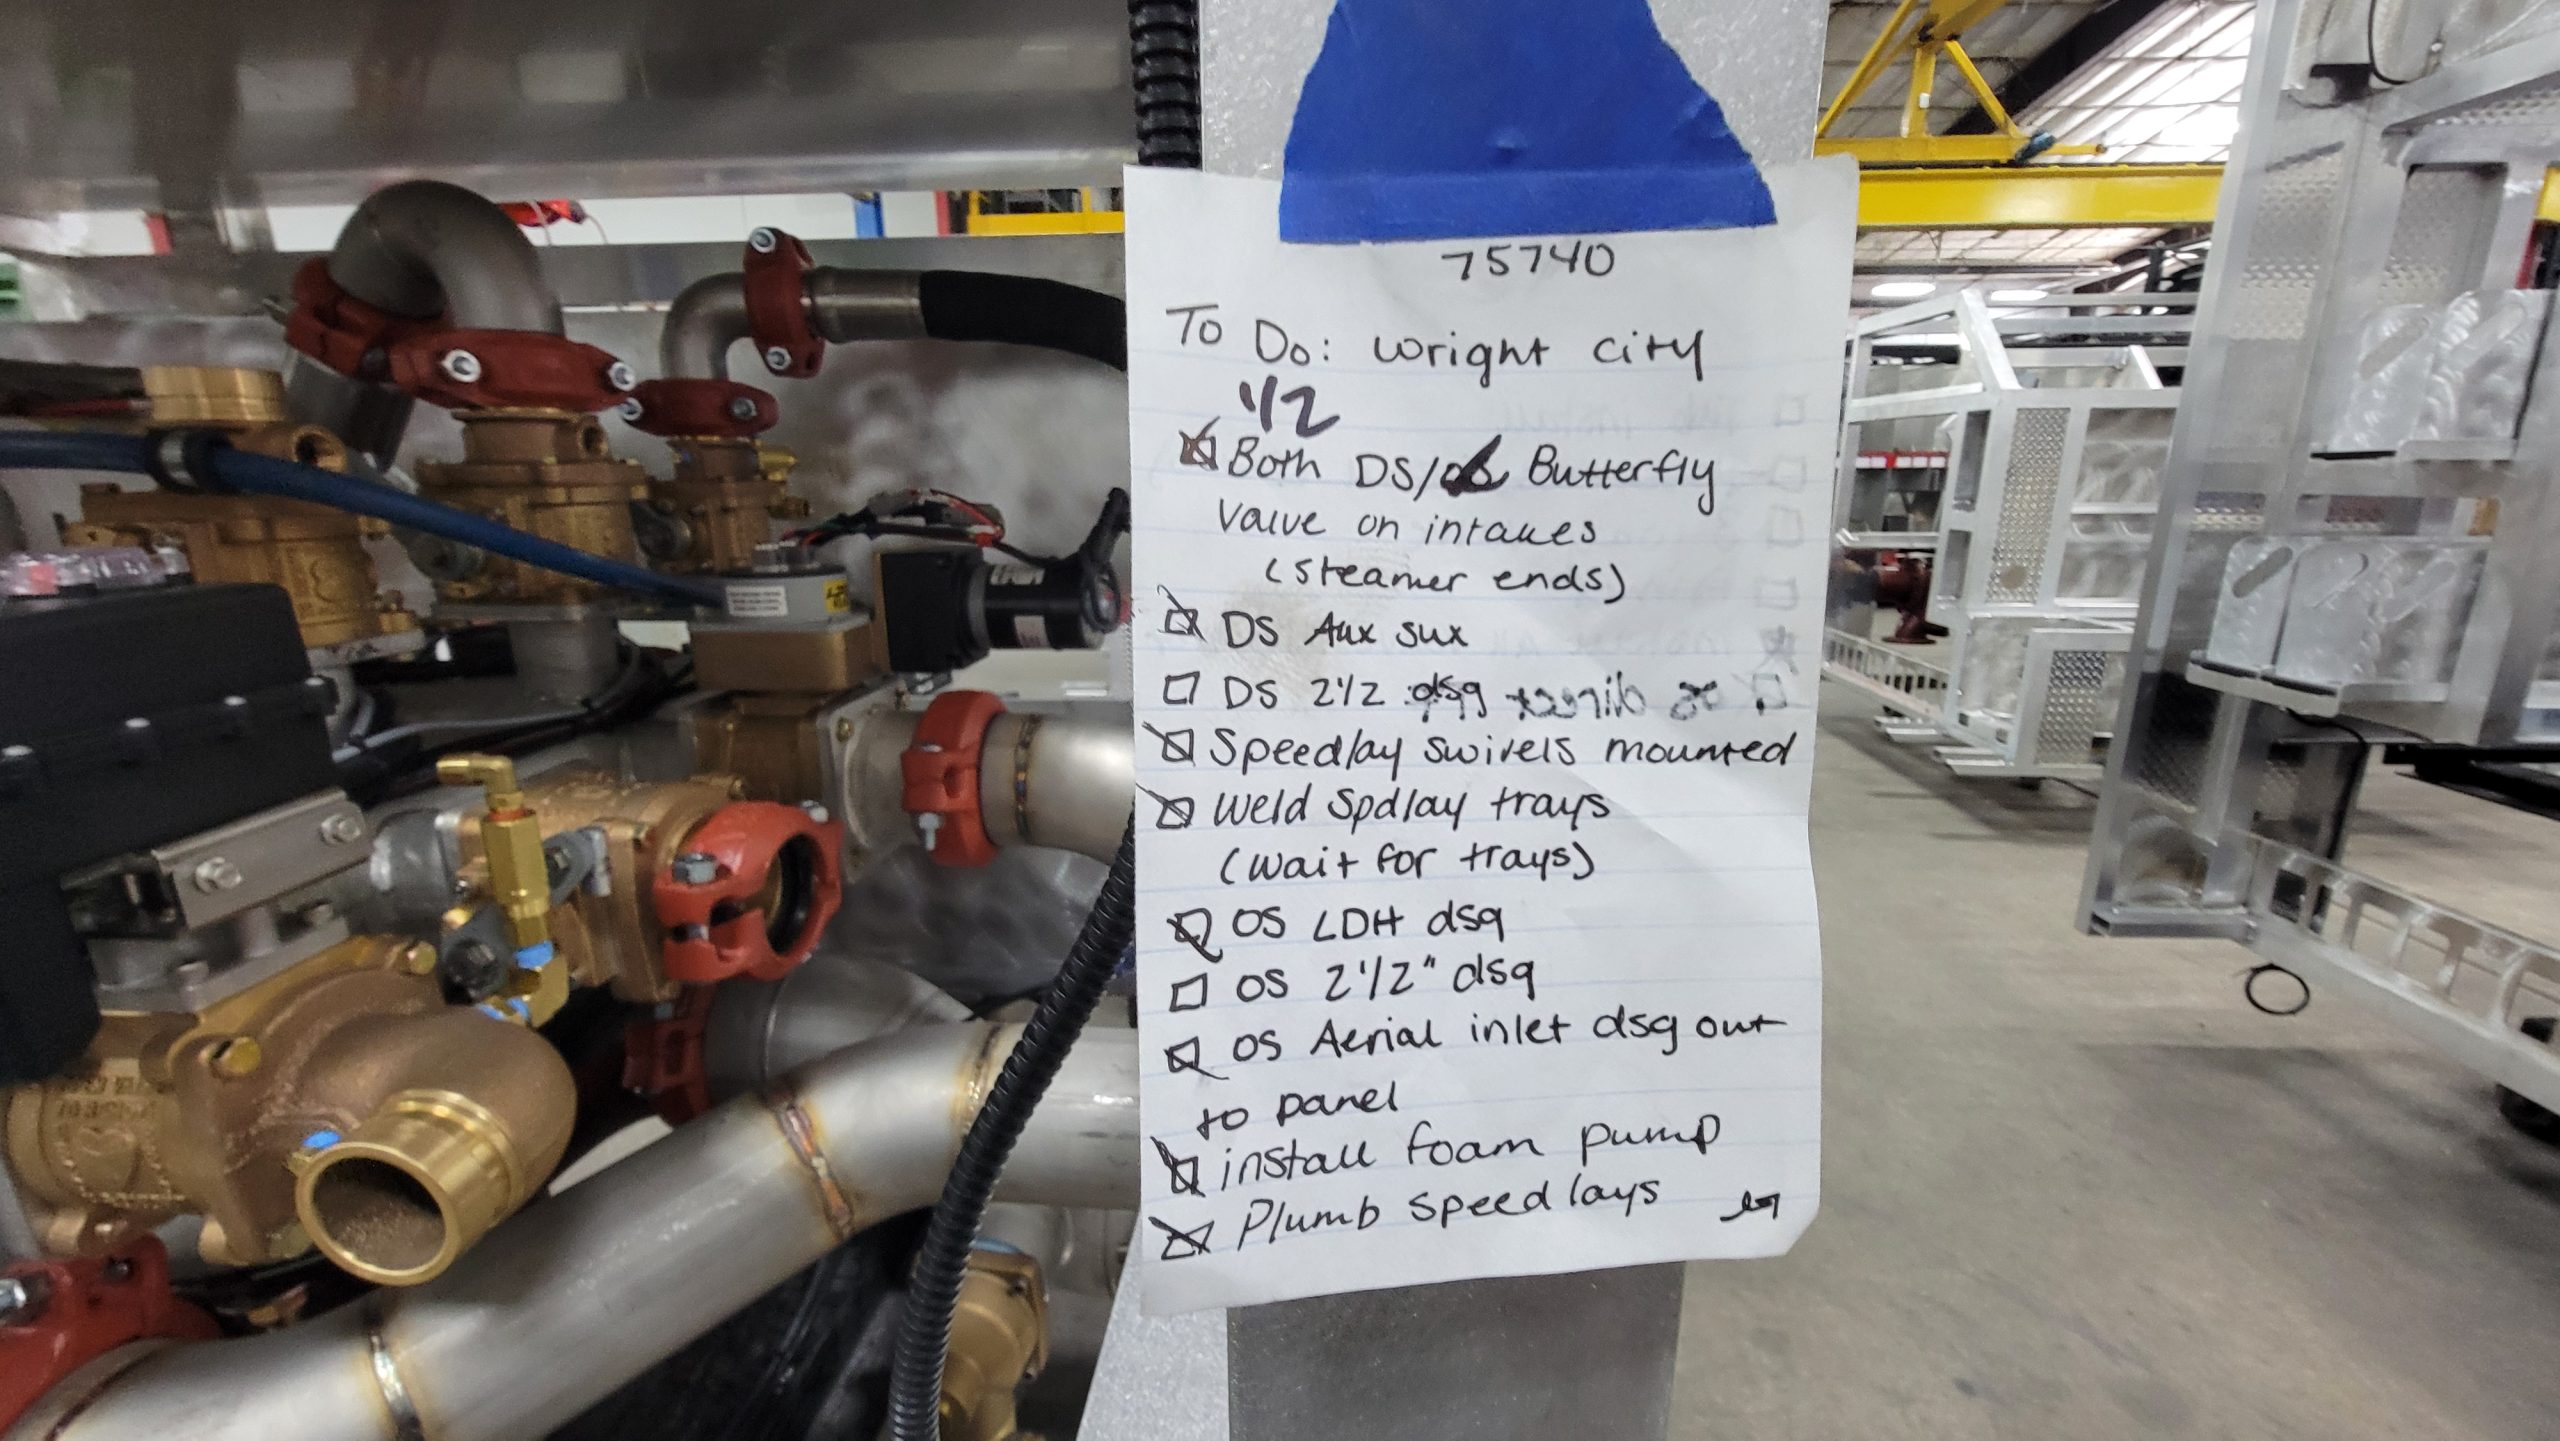 75740
To Do: Wright City
1/2
Both DS/ Butterfly
Valve on intakes
(steamer ends)
DS Aux sux
DS 2 1/2 dsg
Speedlay swivels mounted
Weld Spdlay trays
(wait for trays)
OS LDH dsg
OS 2 1/2" dsg
OS Aerial inlet dsg out
to panel
install foam pump
Plumb speedlays